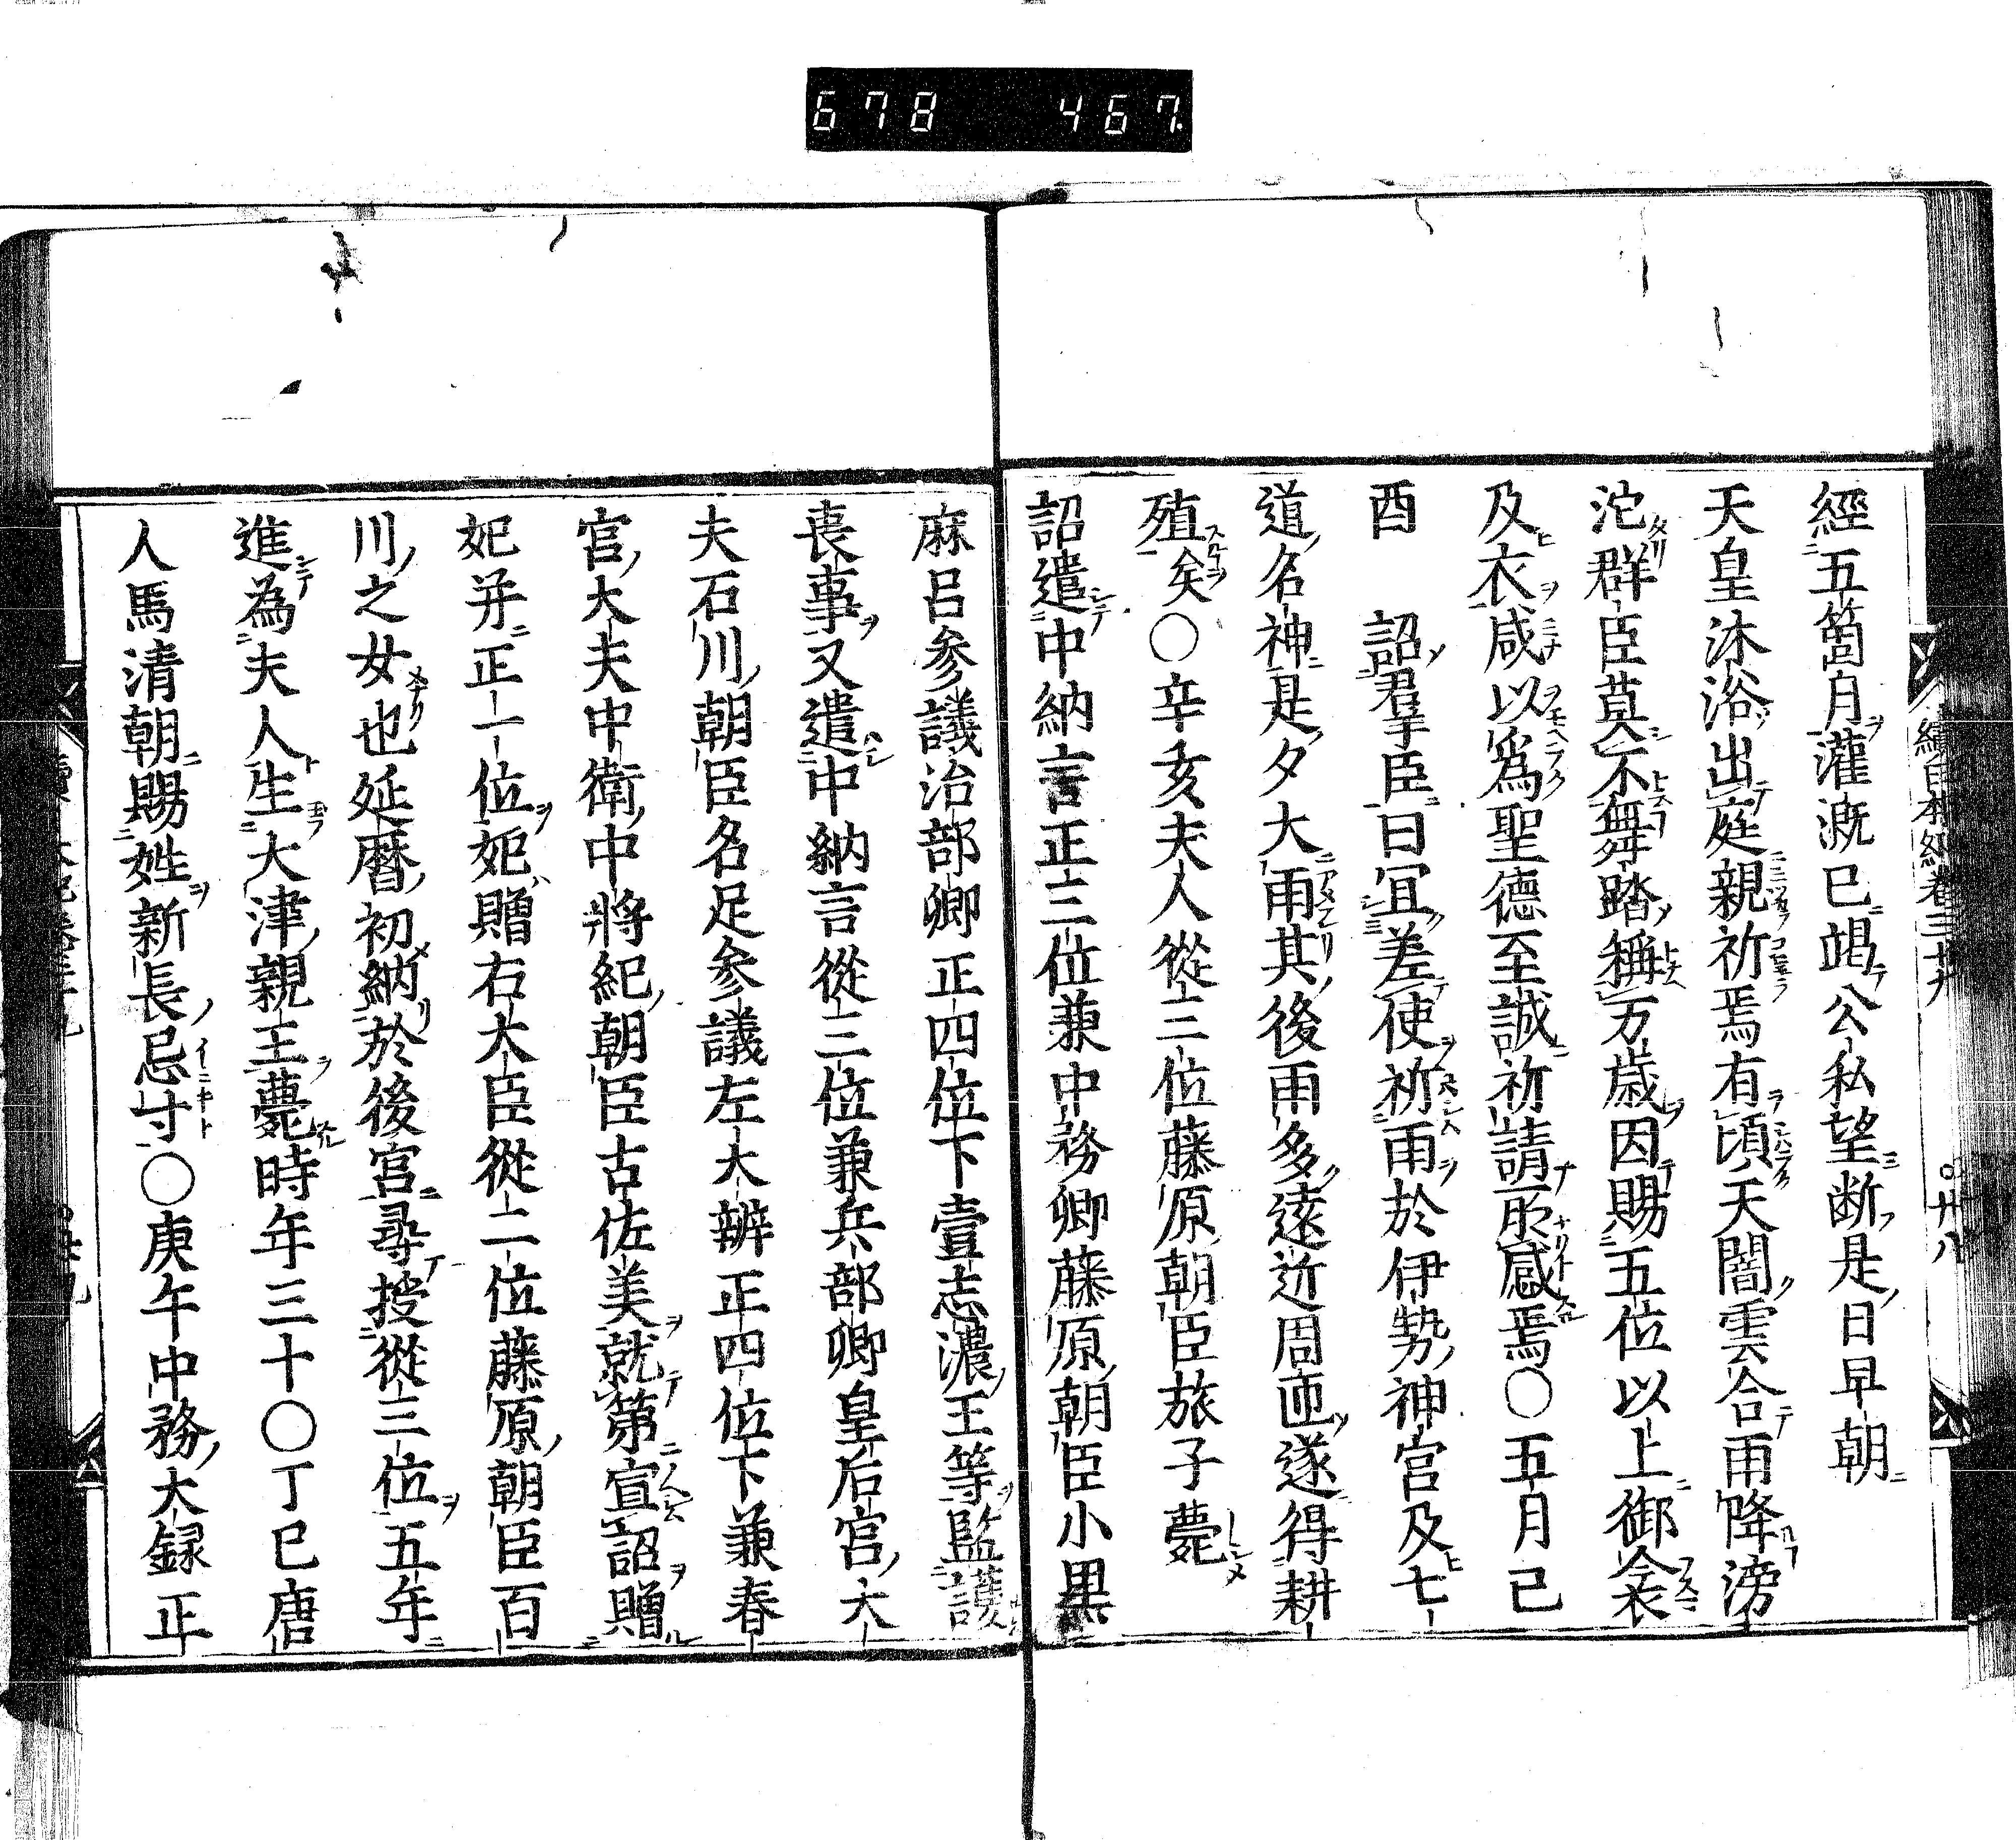 678 467.
續日本紀卷三十九
○廿八
經五箇月灌漑已竭公私望断是日早朝
天皇沐浴出庭親祈焉有頃天闇雲合雨降滂
沱群臣莫不舞踏稱万歳因賜五位以上御衾
及衣咸以爲聖德至誠祈請所感焉○五月己
酉 詔羣臣曰宜差使祈雨於伊勢神宮及七
道名神是夕大雨其後雨多遠近周匝遂得耕
殖矣○辛亥夫人從三位藤原朝臣旅子薨
詔遣中納言正三位兼中務卿藤原朝臣小黒
麻呂参議治部卿正四位下壹志濃王等監護
喪事又遣中納言從三位兼兵部卿皇后宮大
夫石川朝臣名足参議左大辨正四位下兼春
宮大夫中衛中將紀朝臣古佐美就第宣詔贈
妃并正一位妃贈右大臣從二位藤原朝臣百
川之女也延暦初納於後宮尋授從三位五年
進為夫人生大津親王薨時年三十○丁巳唐
人馬清朝賜姓新長忌寸○庚午中務大録正